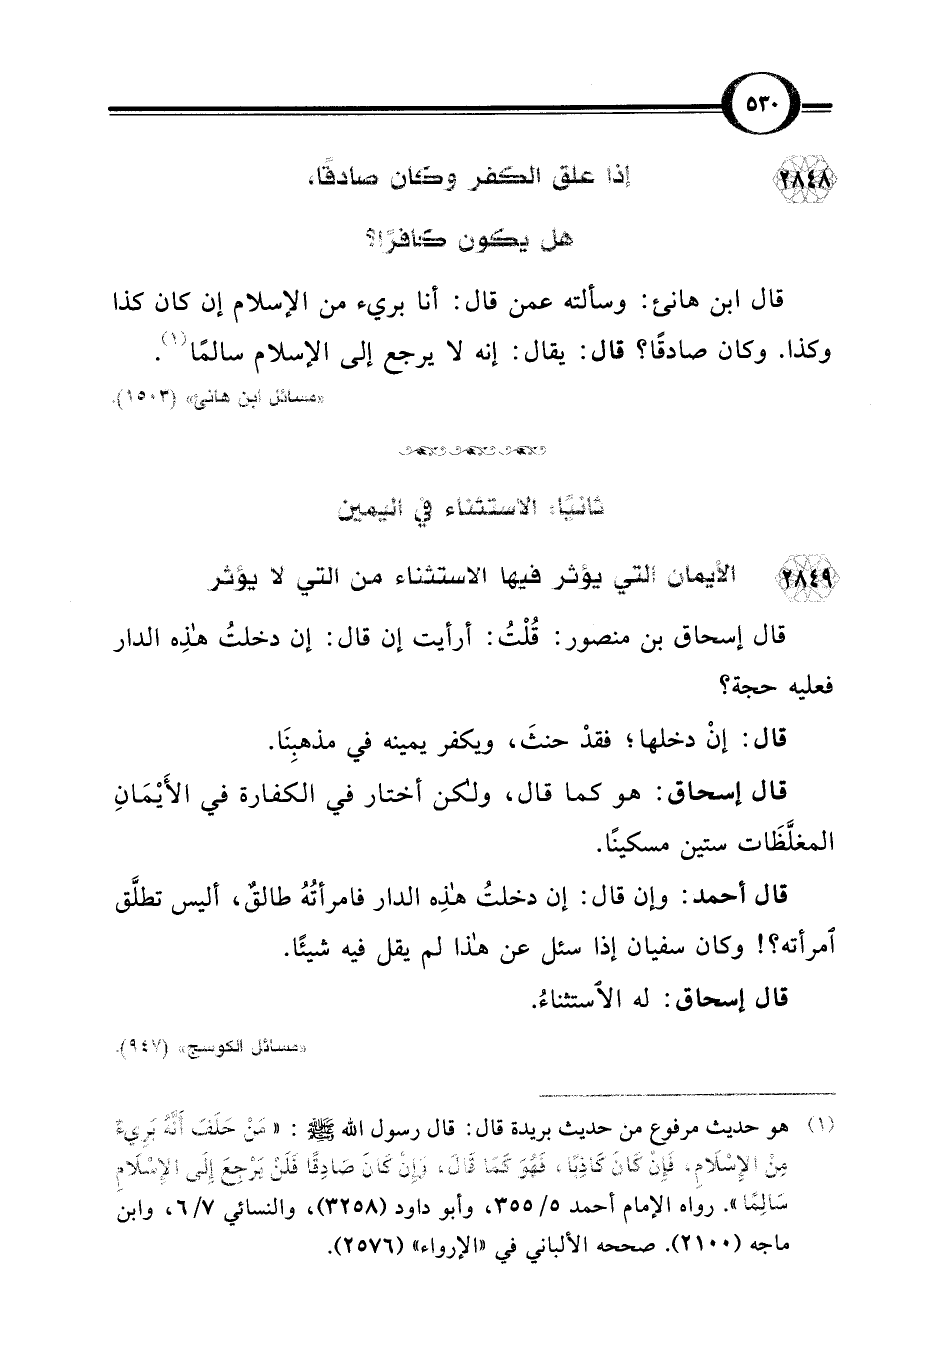 ٥٣٠
٢٨٤٨ إذا علق الكفر وكان صادقًا،
هل يكون كافرًا؟
قال ابن هانئ: وسألته عمن قال: أنا بريء من الإسلام إن كان كذا
وكذا. وكان صادقًا؟ قال: يقال: إنه لا يرجع إلى الإسلام سالمًا(١).
«مسائل ابن هانئ» (١٥٠٣).
ثانيًا: الاستثناء في اليمين
٢٨٤٩ الأيمان التي يؤثر فيها الاستثناء من التي لا يؤثر
قال إسحاق بن منصور: قُلْتُ: أرأيت إن قال: إن دخلتُ هذِه الدار
فعليه حجة؟
قال: إنْ دخلها؛ فقدْ حنثَ، ويكفر يمينه في مذهبِنَا.
قال إسحاق: هو كما قال، ولكن أختار في الكفارة في الأَيْمَانِ
المغلَّظَات ستين مسكينًا.
قال أحمد: وإن قال: إن دخلتُ هذِه الدار فامرأتُهُ طالقٌ، أليس تطلَّق
ٱمرأته؟! وكان سفيان إذا سئل عن هذا لم يقل فيه شيئًا.
قال إسحاق: له الٱستثناءُ.
«مسائل الكوسج» (٩٤٧).
(١) هو حديث مرفوع من حديث بريدة قال: قال رسول الله ﷺ: «مَنْ حَلَفَ أَنَّهُ بَرِيءٌ
مِنَ الإِسْلَامِ، فَإِنْ كَانَ كَاذِبًا، فَهُوَ كَمَا قَالَ، وَإِنْ كَانَ صَادِقًا فَلَنْ يَرْجِعَ إِلَى الإِسْلَامِ
سَالِمًا». رواه الإمام أحمد ٥/ ٣٥٥، وأبو داود (٣٢٥٨)، والنسائي ٧/ ٦، وابن
ماجه (٢١٠٠). صححه الألباني في «الإرواء» (٢٥٧٦).